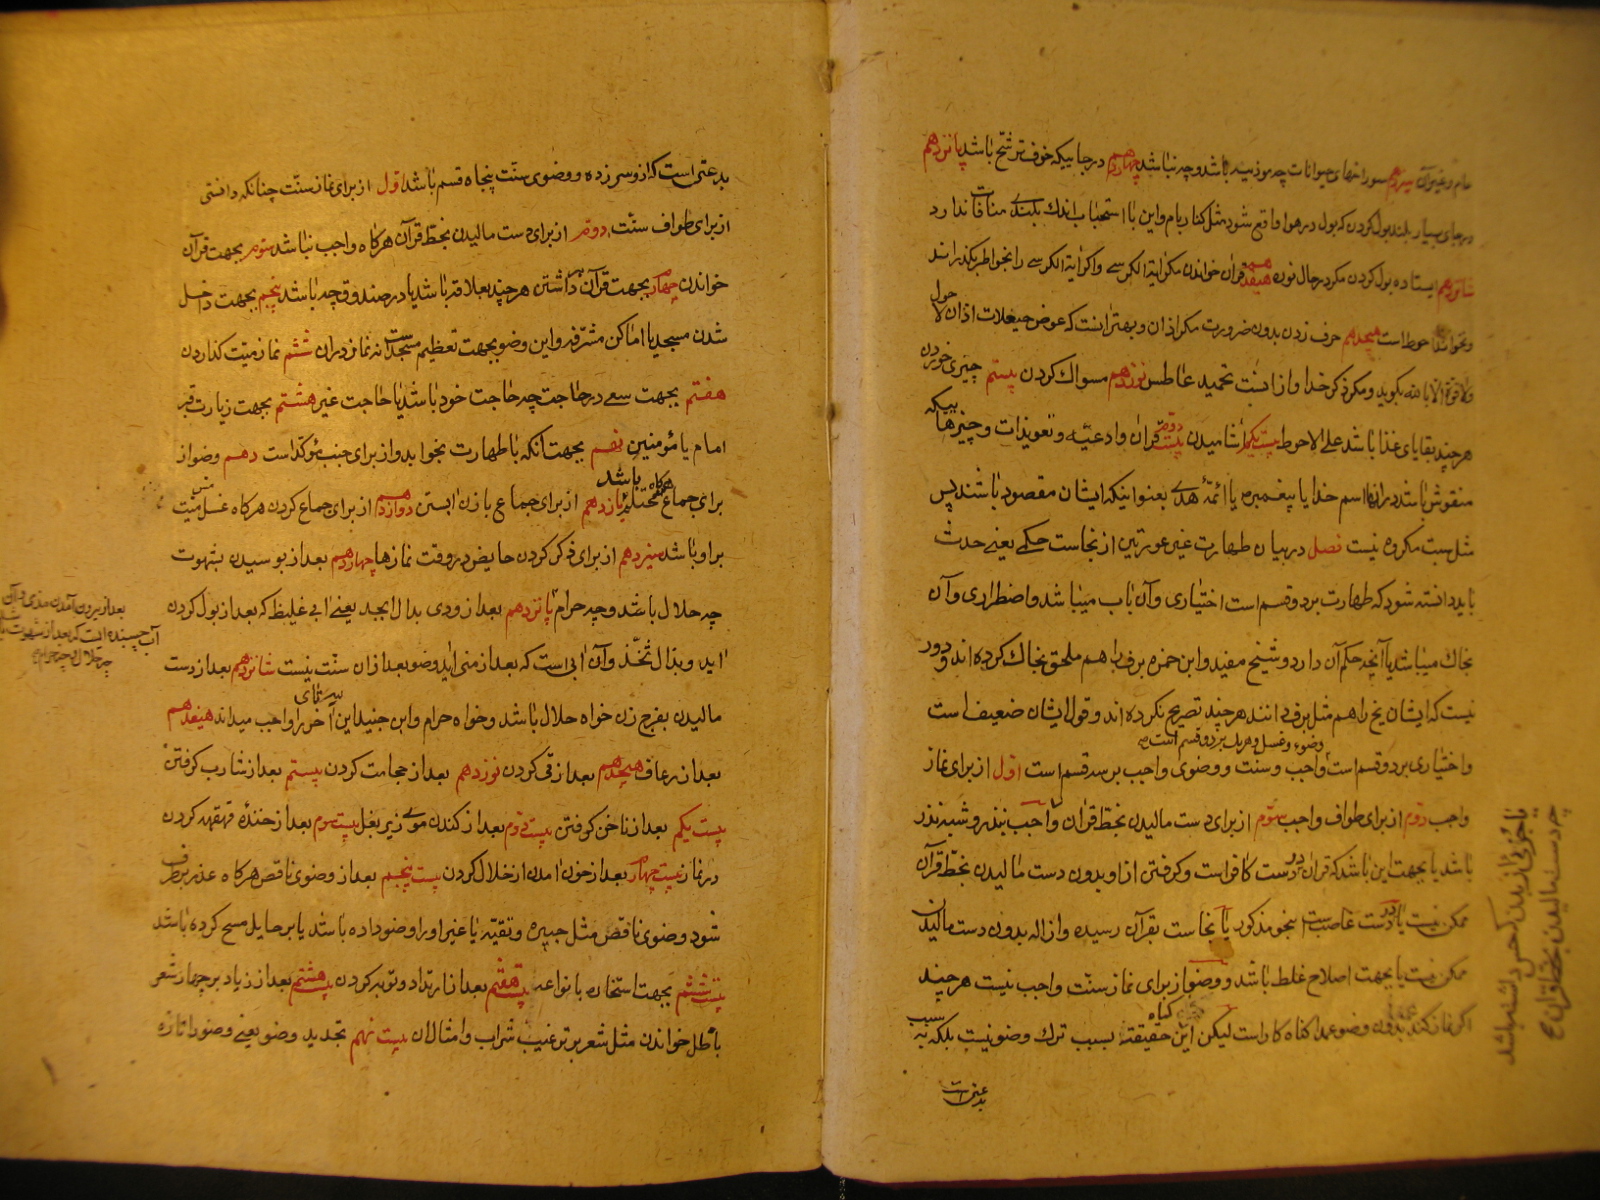 سیزدهم سوراخهای حیوانات چه موذی باشد و چه نباشد چهاردهم در جاییکه خوف ترشح باشد پانزدهم
در جای بسیار بلند بول کردن که بول در هوا واقع شود مثل کنار بام و این با استحباب اندك بلندی منافات ندارد
شانزدهم ایستاده بول کردن مکر در حال نوره هفدهم قرآن خواندن مکر آیة الکرسی واکر آیة الکرسی را بخواطر بکذراند
ونخواند احوط است هیجدهم حرف زدن بدون ضرورت مکر اذان و بهتر انست که عوض حیعلات اذان لا حول
ولا قوة الا بالله بکوید ومکر ذکر خدا و از انست تحمید عاطس نوزدهم مسواك کردن بیستم چیزی خوردن
هر چند بقایای غذا باشد علی الاحوط بیست یکم اشامیدن بیست دوم قرآن وادعیه وتعویذات وچیزهاییکه
منقوش باشد در انها اسم خدا یا پیغمبر یا ائمهٔ هدی بعنوانیکه ایشان مقصود باشند پس
مثل بیت مکروه نیست فصل در بیان طهارت غیر عورتین از نجاست حکمی یعنی حدث
باید دانسته شود که طهارت بر دو قسم است اختیاری وآن باب میباشد واضطراری وآن
بخاك میباشد یا آنچه حکم آن دارد وشیخ مفید وابن حمزه برف را هم ملحق بخاك کرده اند ودور
نیست که ایشان یخ را هم مثل برف دانند هر چند تصریح نکرده اند وقول ایشان ضعیف است
وضوء وغسل وهر یك بر دو قسم است
واختیاری بر دو قسم است واجب وسنت ووضوی واجب بر سه قسم است اول از برای نماز
واجب دوم از برای طواف واجب سوم از برای دست مالیدن بخط قرآن واجب بنذر وشبه نذر
باشد یا بجهت این باشد که قرآن در دست کافر است وکرفتن از او بدون دست مالیدن بخط قرآن
ممکن نیست یا در دست غاصب است بنحو مذکور یا نجاست بقرآن رسیده وازاله بدون دست مالیدن
ممکن نیست یا بجهت اصلاح غلط باشد ووضو از برای نماز سنت واجب نیست هر چند
اکر نماز کند بدون وضو عمدا کناه کار است لیکن این حقیقة کناه بسبب ترك وضو نیست بلکه بسبب
بدعتی است
بدعتی است که از وسر زده ووضوی سنت پنجاه قسم باشد اول از برای نماز سنت چنانکه دانستی
از برای طواف سنت دوم از برای دست مالیدن بخط قرآن هرکاه واجب نباشد سوم بجهت قرآن
خواندن چهارم بجهت قرآن داشتن هر چند بعلاقه باشد یا در صندوقچه باشد پنجم بجهت داخل
شدن مسجد یا اماکن مشرفه واین وضو بجهت تعظیم مسجد است نه نماز در ان ششم نماز میت کذاردن
هفتم بجهت سعی در حاجت چه حاجت خود باشد یا حاجت غیر هشتم بجهت زیارت قبر
امام یا مؤمنین نهم بجهت انکه با طهارت بخوابد واز برای جنب مؤکد است دهم وضو از
برای جماع محتلم هرکاه باشد یازدهم از برای جماع با زن ابستن دوازدهم از برای جماع کردن هرکاه غسل مس میت
بر او باشد سیزدهم از برای ذکر کردن حایض در وقت نمازها چهاردهم بعد از بوسیدن بشهوت
چه حلال باشد وچه حرام پانزدهم بعد از ودی بدال ابجد یعنی ابی غلیظ که بعد از بول کردن
اید وبذال ثخذ وآن ابی است که بعد از منی اید وضو بعد از ان سنت نیست شانزدهم بعد از دست
مالیدن بفرج زن خواه حلال باشد وخواه حرام وابن جنید این آخر را واجب میداند هفدهم
بعد از رعاف هیجدهم بعد از قی کردن نوزدهم بعد از حجامت کردن بیستم بعد از شارب کرفتن
بیست یکم بعد از ناخن کرفتن بیست دوم بعد از کندن موی زیر بغل بیست سوم بعد از خنده قهقهه کردن
در نماز بیست چهارم بعد از خون امدن از خلال کردن بیست پنجم بعد از وضوی ناقص هرکاه عذر برطرف
شود وضوی ناقص مثل جبیره وتقیه یا غیر او را وضو داده باشد یا بر حایل مسح کرده باشد
بیست ششم بجهت استخاره بانواعه بیست هفتم بعد از ارتداد وتوبه کردن بیست هشتم بعد از زیاد بر چهار شعر
باطل خواندن مثل شعر بر ترغیب شراب وامثال ان بیست نهم تجدید وضو یعنی وضو را تازه
بعد از بیرون آمدن مذی وآن
آب چسبنده ایست که بعد از شهوت
چه حلال وچه حرام